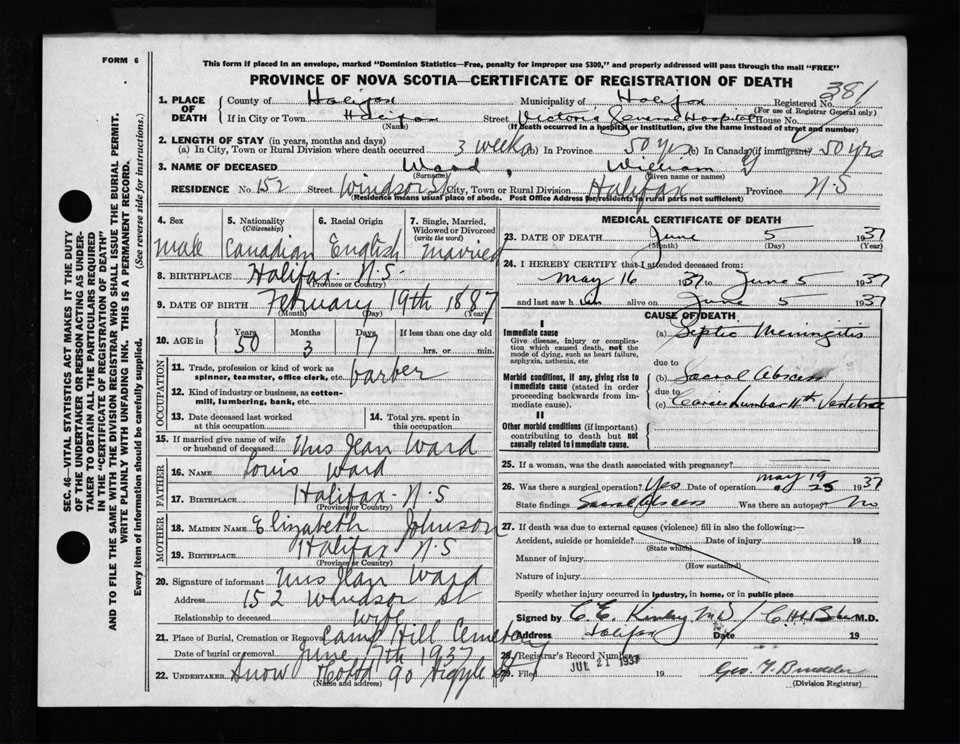 FORM 6
This form if placed in an envelope, marked "Dominion Statistics—Free, penalty for improper use $300," and properly addressed will pass through the mail "FREE"
PROVINCE OF NOVA SCOTIA—CERTIFICATE OF REGISTRATION OF DEATH
SEC. 46—VITAL STATISTICS ACT MAKES IT THE DUTY
OF THE UNDERTAKER OR PERSON ACTING AS UNDER-
TAKER TO OBTAIN ALL THE PARTICULARS REQUIRED
IN THE "CERTIFICATE OF REGISTRATION OF DEATH"
AND TO FILE THE SAME WITH THE DIVISION REGISTRAR WHO SHALL ISSUE THE BURIAL PERMIT.
WRITE PLAINLY WITH UNFADING INK. THIS IS A PERMANENT RECORD.
Every item of information should be carefully supplied. (See reverse side for instructions.)
1. PLACE OF DEATH
County of Halifax Municipality of Halifax Registered No. 381
(For use of Registrar General only)
If in City or Town Halifax Street Victoria General Hospital House No.
(Name) (If death occurred in a hospital or institution, give the name instead of street and number)
2. LENGTH OF STAY (in years, months and days)
(a) In City, Town or Rural Division where death occurred 3 weeks (b) In Province 50 yrs (c) In Canada (if immigrant) 50 yrs
3. NAME OF DECEASED Ward, William
(Surname) (Given name or names)
RESIDENCE No. 152 Street Windsor St City, Town or Rural Division Halifax Province N.S
(Residence means usual place of abode. Post Office Address for residents in rural parts not sufficient)
4. Sex
Male
5. Nationality
(Citizenship)
Canadian
6. Racial Origin
English
7. Single, Married, Widowed or Divorced
(write the word)
Married
8. BIRTHPLACE Halifax N.S.
(Province or Country)
9. DATE OF BIRTH February 19th 1887
(Month) (Day) (Year)
10. AGE in
Years Months Days If less than one day old
50 3 17 hrs. or min.
OCCUPATION
11. Trade, profession or kind of work as
spinner, teamster, office clerk, etc. barber
12. Kind of industry or business, as cotton-
mill, lumbering, bank, etc.
13. Date deceased last worked
at this occupation
14. Total yrs. spent in
this occupation
15. If married give name of wife
or husband of deceased Mrs Jean Ward
FATHER
16. NAME Louis Ward
17. BIRTHPLACE Halifax N.S
(Province or Country)
MOTHER
18. MAIDEN NAME Elizabeth Johnson
19. BIRTHPLACE Halifax N.S
(Province or Country)
20. Signature of informant Mrs Jean Ward
Address 152 Windsor St
Relationship to deceased wife
21. Place of Burial, Cremation or Removal Camp Hill Cemetery
Date of burial or removal June 7th 1937
22. UNDERTAKER Snow 90 Argyle St
(Name and address)
MEDICAL CERTIFICATE OF DEATH
23. DATE OF DEATH June 5 1937
(Month) (Day) (Year)
24. I HEREBY CERTIFY that I attended deceased from:
May 16 1937 to June 5 1937
and last saw him alive on June 5 1937
CAUSE OF DEATH
I
Immediate cause
Give disease, injury or complica-
tion which caused death, not the
mode of dying, such as heart failure,
asphyxia, asthenia, etc
(a) Septic Meningitis
due to
Morbid conditions, if any, giving rise to
immediate cause (stated in order
proceeding backwards from
immediate cause).
(b) Sacral Abscess
due to
(c) Caries Lumbar 4th Vertebrae
II
Other morbid conditions (if important)
contributing to death but not
causally related to immediate cause.
25. If a woman, was the death associated with pregnancy?
26. Was there a surgical operation? Yes Date of operation May 19 25 1937
State findings Sacral abscess Was there an autopsy? No
27. If death was due to external causes (violence) fill in also the following:—
Accident, suicide or homicide? Date of injury 19
(State which)
Manner of injury
(How sustained)
Nature of injury
Specify whether injury occurred in industry, in home, or in public place
Signed by C.E. M.D.
Address Halifax Date 19
28. Registrar's Record Number
JUL 21 1937
29. Filed 19 Geo.
(Division Registrar)